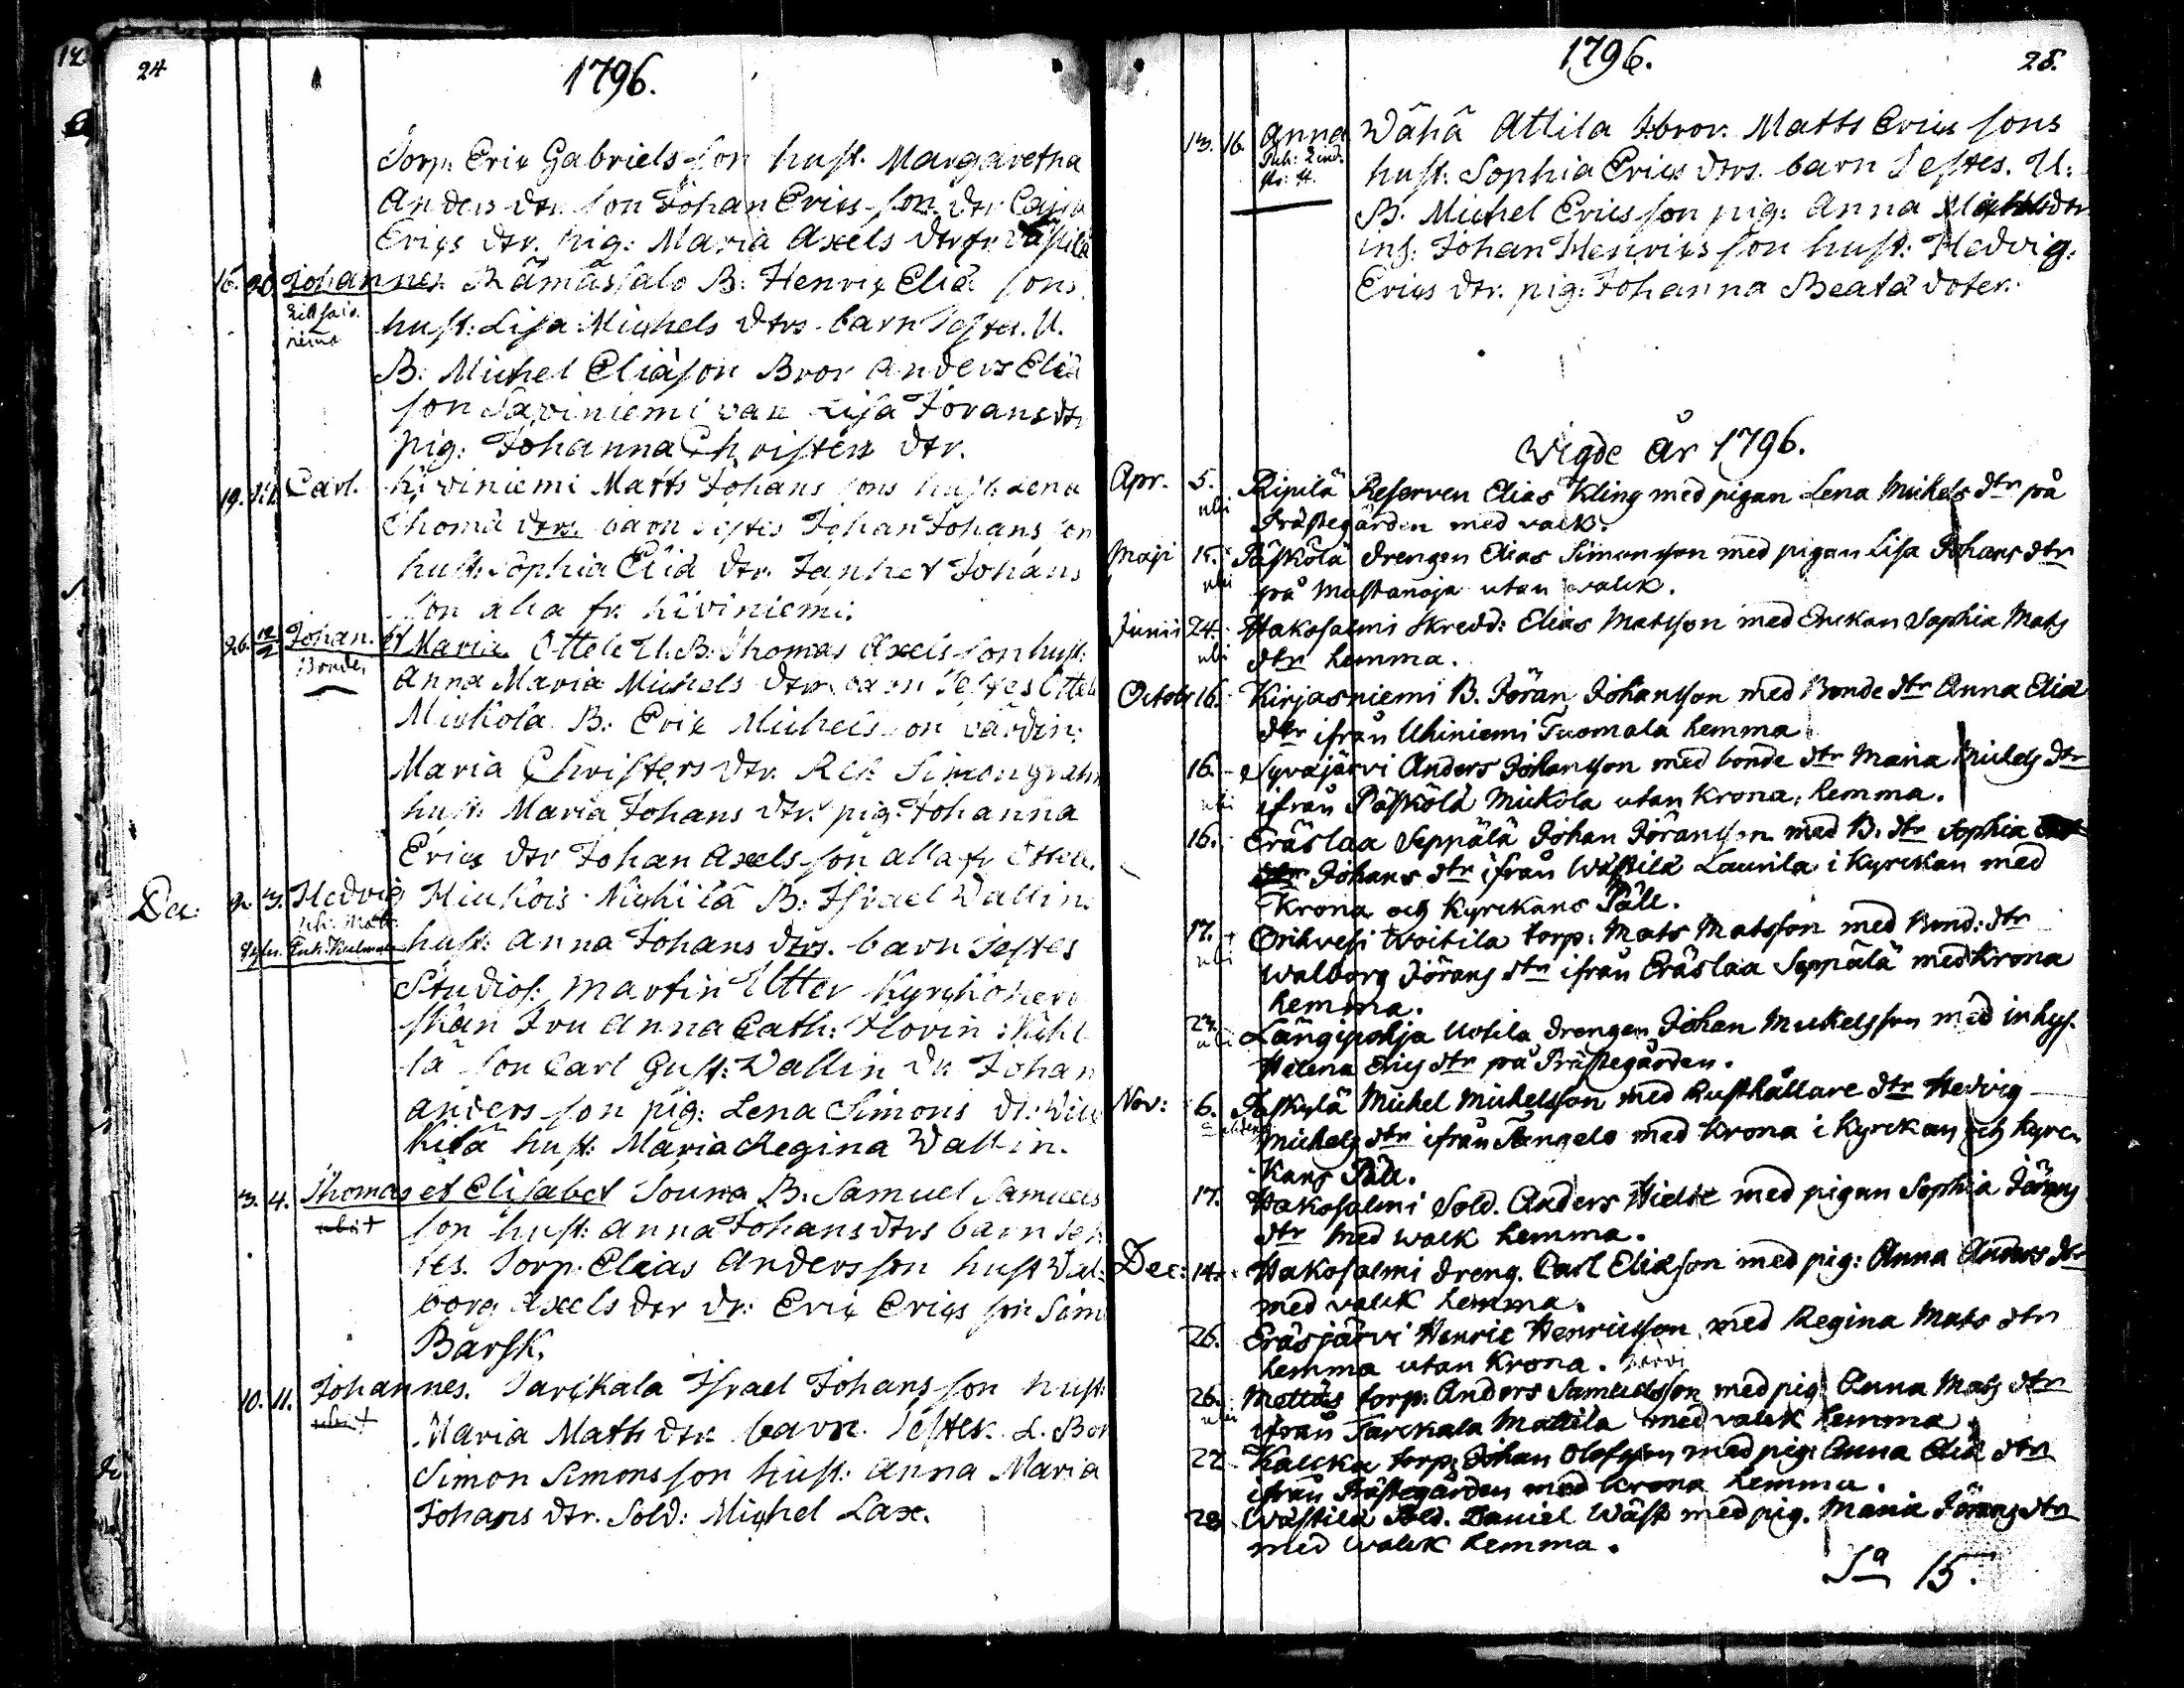 24
1796.
Torp: Eric Gabriels son hust. Margaretha
Anders dtr. son Johan Erics son. dtr Cajsa
Erics dtr. pig: Maria Axels dtr fr Västilä
15. 20. Johannes. Rämässalo B: Henric Eliä sons
hust: Lisa Michels dtrs. barn Testes. U.
B: Michel Eliäson Bror Anders Eliä
son Saviniemi Lisa Jörans dtr
pig: Johanna Christers dtr.
19. Carl. Kiviniemi Matts Johans sons hust: Lena
Thomä dtrs. barn Testes Johan Johans son
hust: Sophia Eliä dtr. Johans
son alla fr. Kiviniemi.
26. Johan. et Maria Ottele U. B: Thomas Axels son hust:
Bonde.
Anna Maria Michels dtrs. barn Testes Ottele
Mickola B: Eric Michels son värdin:
Maria Christers dtr. Simon
hust: Maria Johans dtr. pig: Johanna
Erics dtr Johan Axels son alla fr Ottele.
Dec: 2. 3. Hedvig Hiukois B: Israel Wallin.
hust: Anna Johans dtrs. barn Testes
Studios: Martin Utter Kyrkoherd
skan Fru Anna Cath: Florin
lä son Carl Gust: Wallin dr Johan
Anders son pig: Lena Simons dr:
kilä hust: Maria Regina Wallin.
3. 4. Thomas et Elisabet Souna B. Samuel Samuels
son hust: Anna Johans dtrs barn Tes
tes. Torp. Elias Andersson hust Wal
borg Axels dtr dr: Eric Erics son Sim
Barsk.
10. 11. Johannes. Israel Johans son hust:
Maria Matts dtr. barn. Testes. L. Bon
Simon Simons son hust: Anna Maria
Johans dtr. Sold: Michel Lax.
1796.
25.
13. 16. Anna Wähä Attila Matts Erics sons
hust: Sophia Erics dtrs. barn Testes. U.
B. Michel Ericsson pig: Anna
inh: Johan Henrics son hust: Hedvig.
Erics dtr. pig: Johanna Beata doter.
Wigde år 1796.
Apr. 5. Ripilä Reserven Elias Kling med pigan Lena Mickels dtr på
Prästegården med valck.
Maji 15. Päskölä drengen Elias Simonsson med pigan Lisa Johans dtr
på Mustanoja utan valck.
Junii 24. Hakosalmi Skredd: Elias Matsson med Enckan Sophia Mats
dtr hemma.
Octob 16. Kirjasniemi B. Jöran Johansson med Bonde dtr Anna Eliä
dtr ifrån Uhiniemi Tuomala hemma
16. Syväjärvi Anders Johansson med bonde dtr Maria Michels dtr
ifrån Päskölä Mickola utan Krona, hemma.
16. Eräslaa Seppälä Johan Jöransson med B. dtr Sophia
Johans dtr ifrån Wästilä Laurila i Kyrckan med
Krona och Kyrckans Päll.
17. Orihvesi Woitila torp: Mats Matsson med Bond: dtr
Walborg Jörans dtr ifrån Eräslaa Seppälä med Krona
hemma.
23. Längipohja Uotila drengen Johan Mickelsson med inhys.
Helena Erics dtr på Prästegården.
Nov: 6. Päskylä Michel Michelsson med Rusthållare dtr Hedvig
Michels dtr ifrån med Krona i Kyrckan och Kyrc-
kans Päll.
17. Hakosalmi Sold. Anders Hielte med pigan Sophia Jörans
dtr med walck hemma.
Dec: 14. Hakosalmi dreng. Carl Eliäson med pig: Anna Anders dtr
med valck hemma.
26. Eräsjärvi Henric Henricsson med Regina Mats dtr
hemma utan Krona.
26. torp: Anders Samuelsson med pig: Anna Mats dtr
ifrån Tarckala Mattila med valck hemma
27. torp: Johan Olofsson med pig: Anna Eliä dtr
ifrån Prästegården med Krona hemma.
28. Wästilä Sold. Daniel Wäst med pig. Maria Jörans dtr
med walck hemma.
Sa 15.